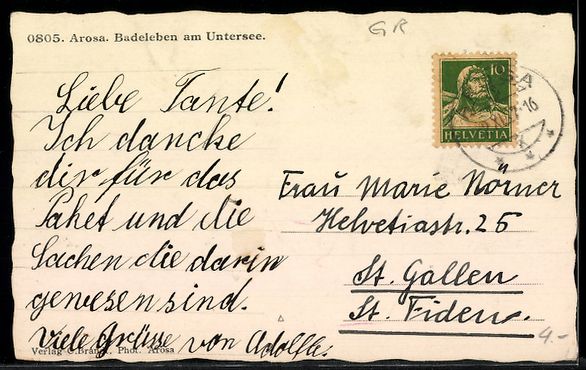 0805. Arosa. Badeleben am Untersee.
GR
10
HELVETIA
Liebe Tante!
Ich dancke
dir für das
Paket und die
Sachen die darin
gewesen sind.
Viele Grüsse von
Frau Marie Nörner
Helvetiastr. 25
St. Gallen
St. Fiden.
4.-
Verlag Phot. Arosa